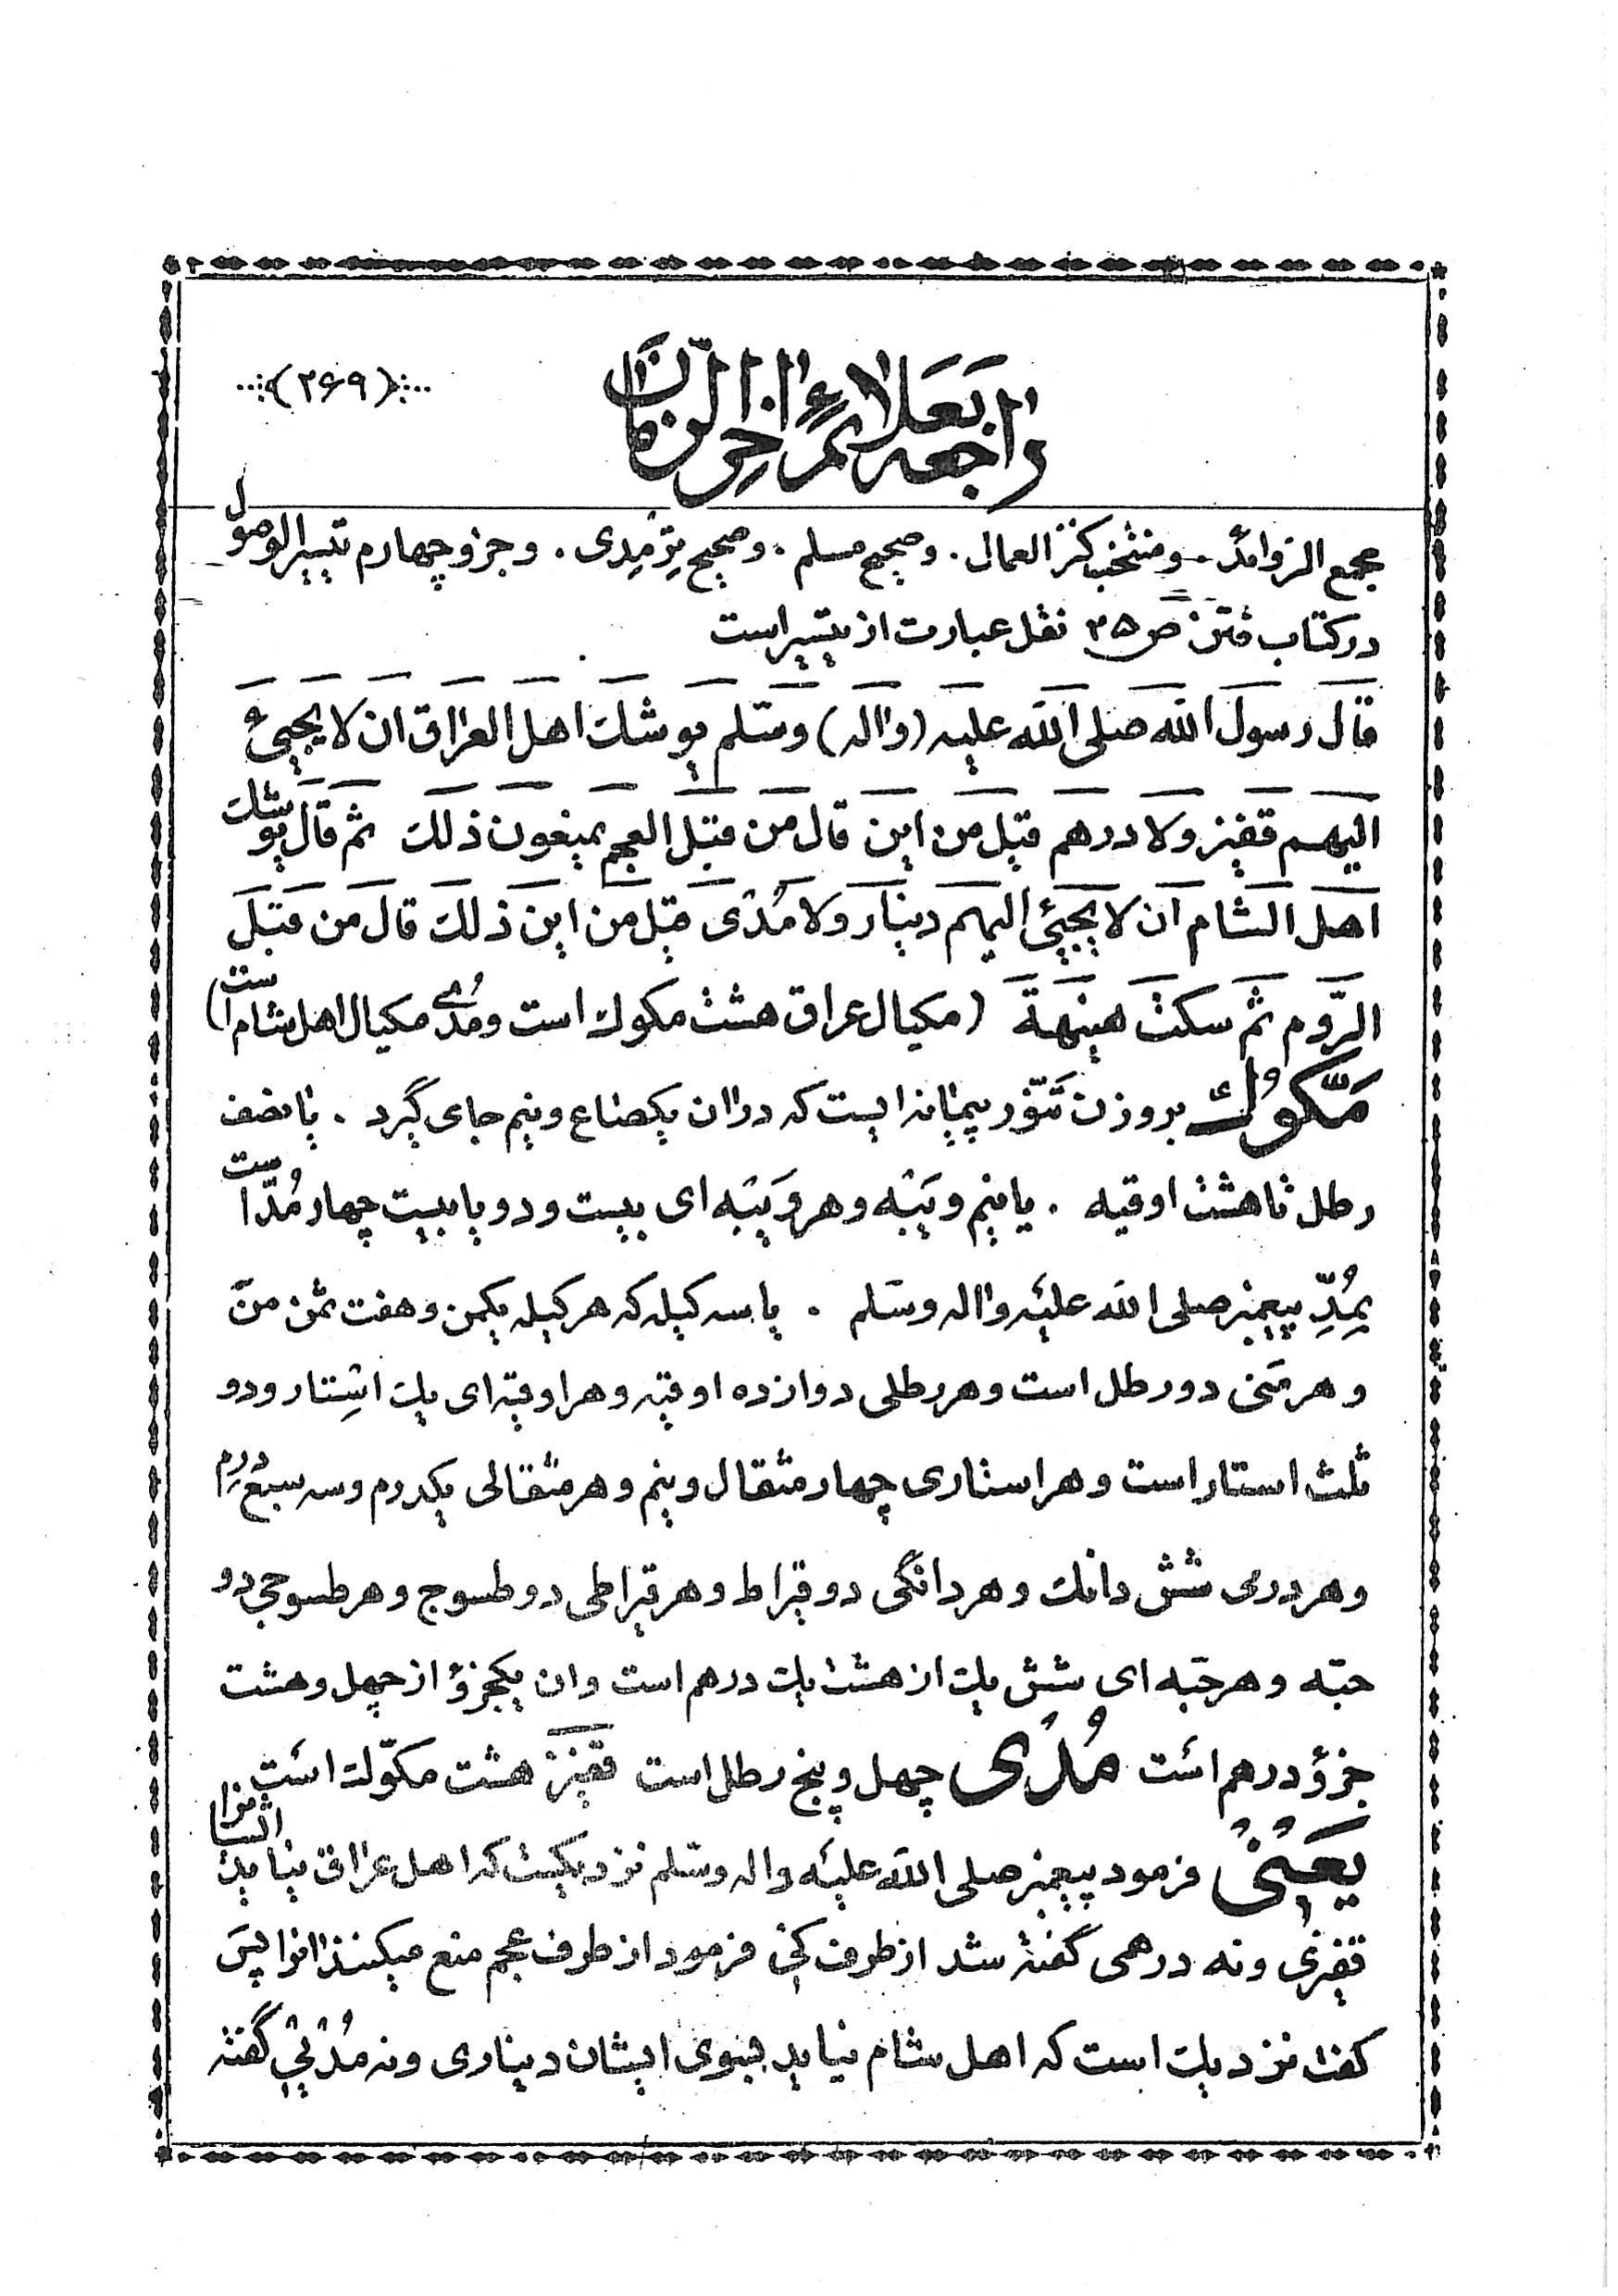 (۲۶۹)
راجعه بعلائم اخر الزمان
مجمع الزوائد . و منتخب کنز العمال . و صحیح مسلم . و صحیح ترمذی . و جزو چهارم تیسیر الوصول
در کتاب فتن ص ۲۵ نقل عبارت از تیسیر است
قال رسول الله صلی الله علیه (واله) وسلم یوشک اهل العراق ان لا یجیئ
الیهم قفیز ولا درهم قیل من این قال من قبل العجم یمنعون ذلک ثم قال یوشک
اهل الشام ان لا یجیئ الیهم دینار ولا مُدْی قیل من این ذلک قال من قبل
الرّوم ثم سکت هنیهة (مکیال عراق هشت مکوک است و مُدی مکیال اهل شام است)
مَکّوک بر وزن تنّور پیمانه ایست که در ان یکصاع و نیم جای گیرد . یا نصف
رطل تا هشت اوقیه . یا نیم ویبه و هر ویبه ای بیست و دو یا بیست چهار مُدّ است
بِمُدِّ پیغمبر صلی الله علیه واله وسلم . یا سه کیله که هر کیله یکمن و هفت ثمن منّ
و هر مَنی دو رطل است و هر رطلی دوازده اوقیه و هر اوقیه ای یک اِستار و دو
ثلث استار است و هر استاری چهار مثقال و نیم و هر مثقالی یکدرم و سه سبع درم
و هر درمی شش دانک و هر دانگی دو قیراط و هر قیراطی دو طسوج و هر طسوجی دو
حبّه و هر حبّه ای شش یک از هشت یک درهم است وان یکجزؤ از چهل و هشت
جزؤ درهم است مُدْی چهل و پنج رطل است قفیز هشت مکّوک است
یَعنی فرمود پیغمبر صلی الله علیه واله وسلم نزدیکست که اهل عراق نیاید ایشانرا
قفیزی و نه درهمی گفته شد از طرف کی فرمود از طرف عجم منع میکنند انرا پس
گفت نزدیک است که اهل شام نیاید بسوی ایشان دیناری و نه مُدْیی گفته